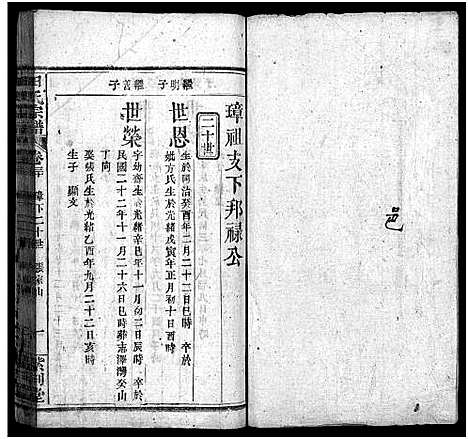 邑
璋祖支下邦祿公
二十世
繼明子
世恩
生於同治癸酉年二月二十二日巳時 卒於
妣方氏生於光緒戊寅年正月初十日酉時
繼善子
世榮
字幼齋生於光緒辛巳年十一月初二日辰時 卒於
民國二十二年十一月二十六日巳時葬志澤灣癸山
丁向
娶張氏生於光緒乙酉年九月二十二日亥時
生子 顯文
氏宗譜
卷
璋下二十世
一
紫荊堂